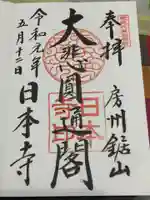 奉拝
房州鋸山
大悲圓通閣
令和元年
五月十二日
日本寺